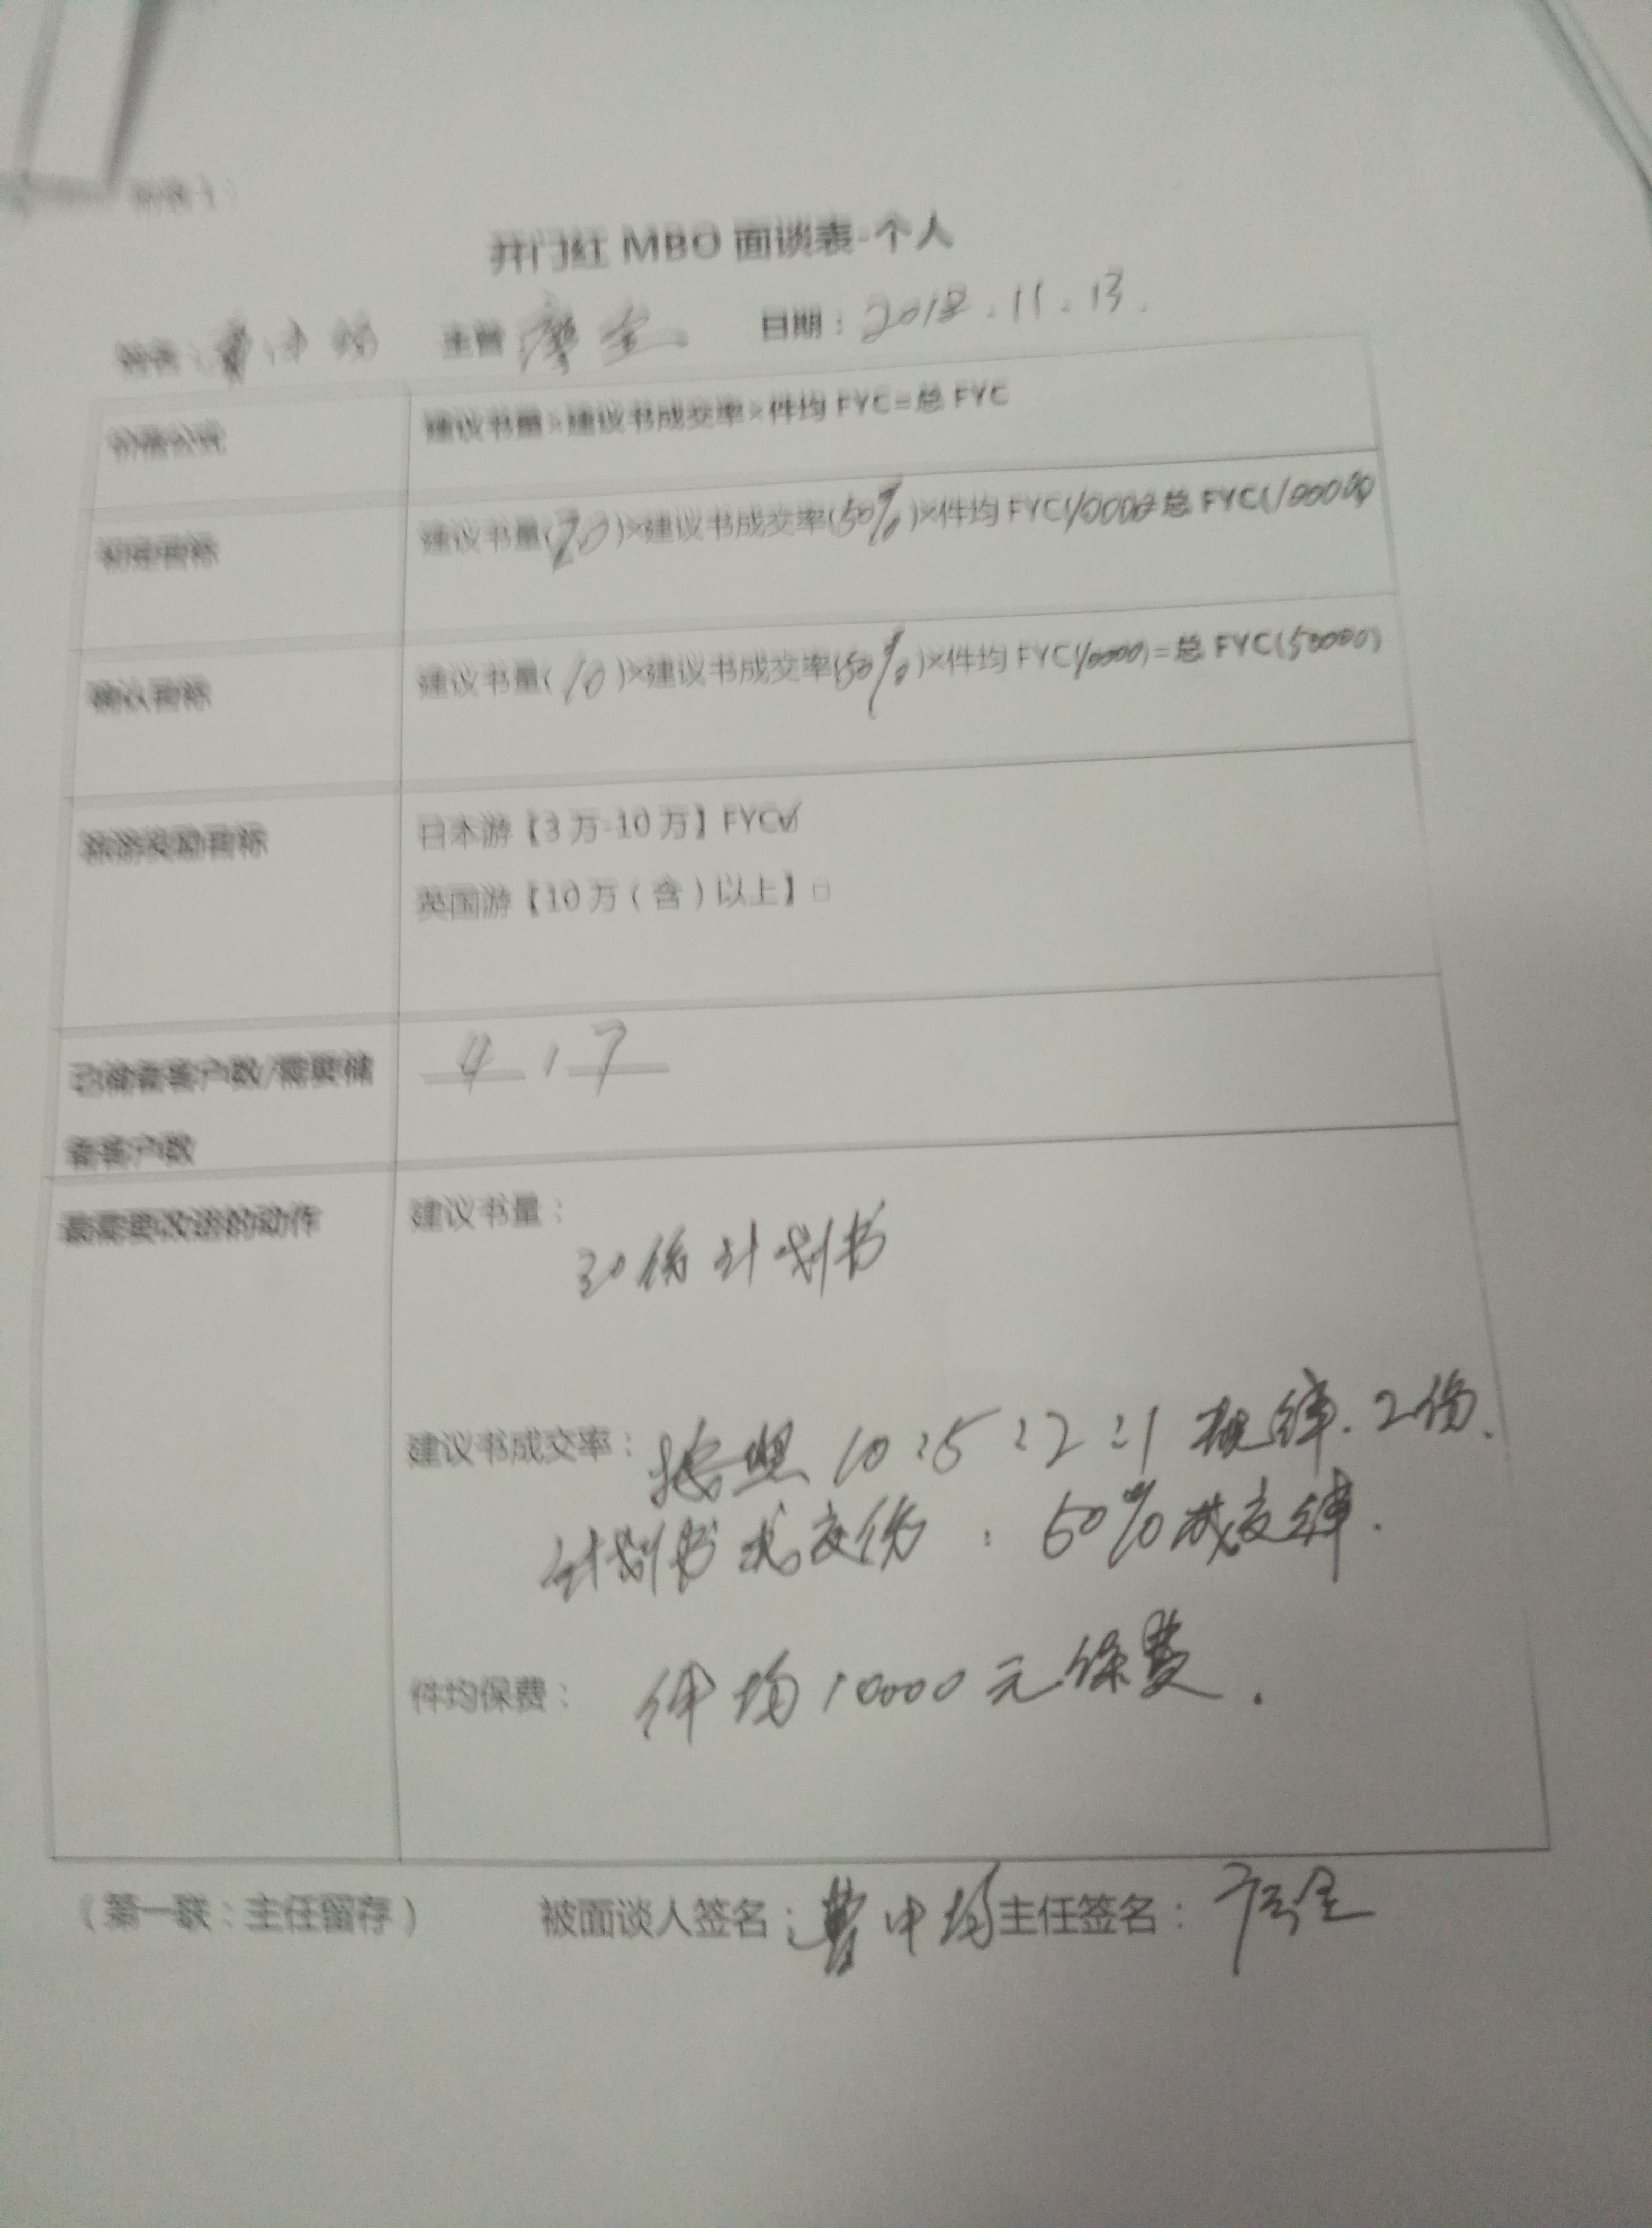 附表1：
开门红 MBO 面谈表-个人
姓名：曹中均 主管 廖全 日期：2018.11.13.
价值公式 建议书量×建议书成交率×件均 FYC=总 FYC
初定目标 建议书量(20)×建议书成交率(50%)×件均 FYC(10000)=总 FYC(100000)
确认目标 建议书量(10)×建议书成交率(50%)×件均 FYC(10000)=总 FYC(50000)
旅游奖励目标 日本游【3万-10万】FYC☑
英国游【10万（含）以上】□
已储蓄客户数/需要储 4 / 7
蓄客户数
最需要改进的动作 建议书量：
30份计划书
建议书成交率：按照 10:5:2:1 概率.2份.
计划书成交份：50%成交率.
件均保费：件均10000元保费.
（第一联：主任留存） 被面谈人签名：曹中均 主任签名：